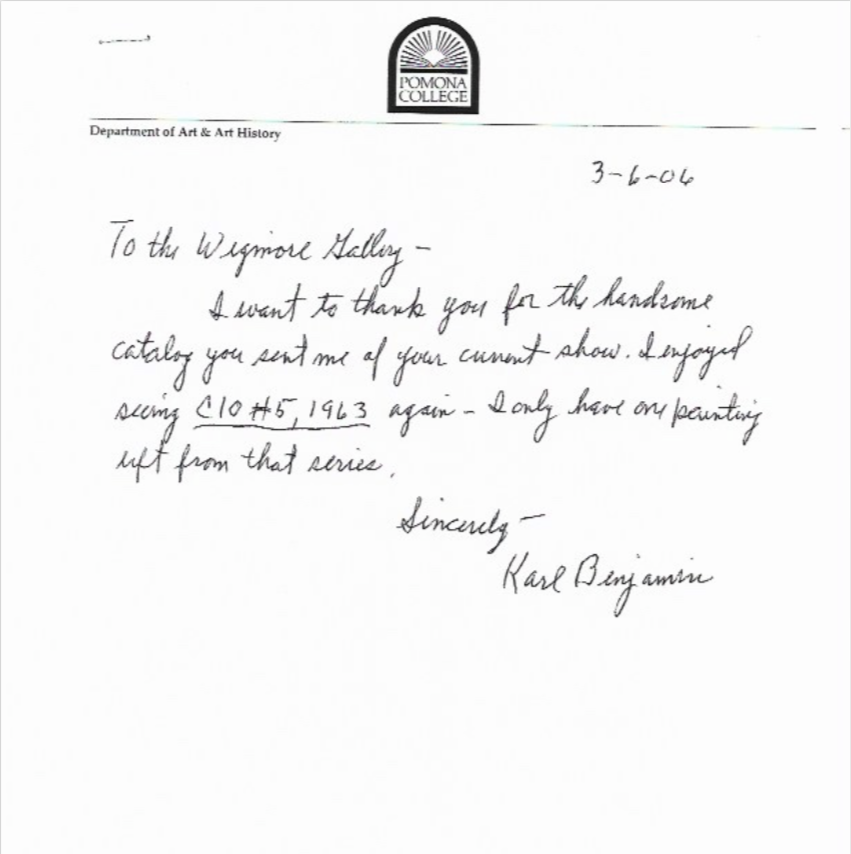 POMONA
COLLEGE
Department of Art & Art History
3-6-06
To the Wigmore Gallery —
I want to thank you for the handsome
catalog you sent me of your current show. I enjoyed
seeing C10 #5, 1963 again – I only have one painting
left from that series.
Sincerely —
Karl Benjamin